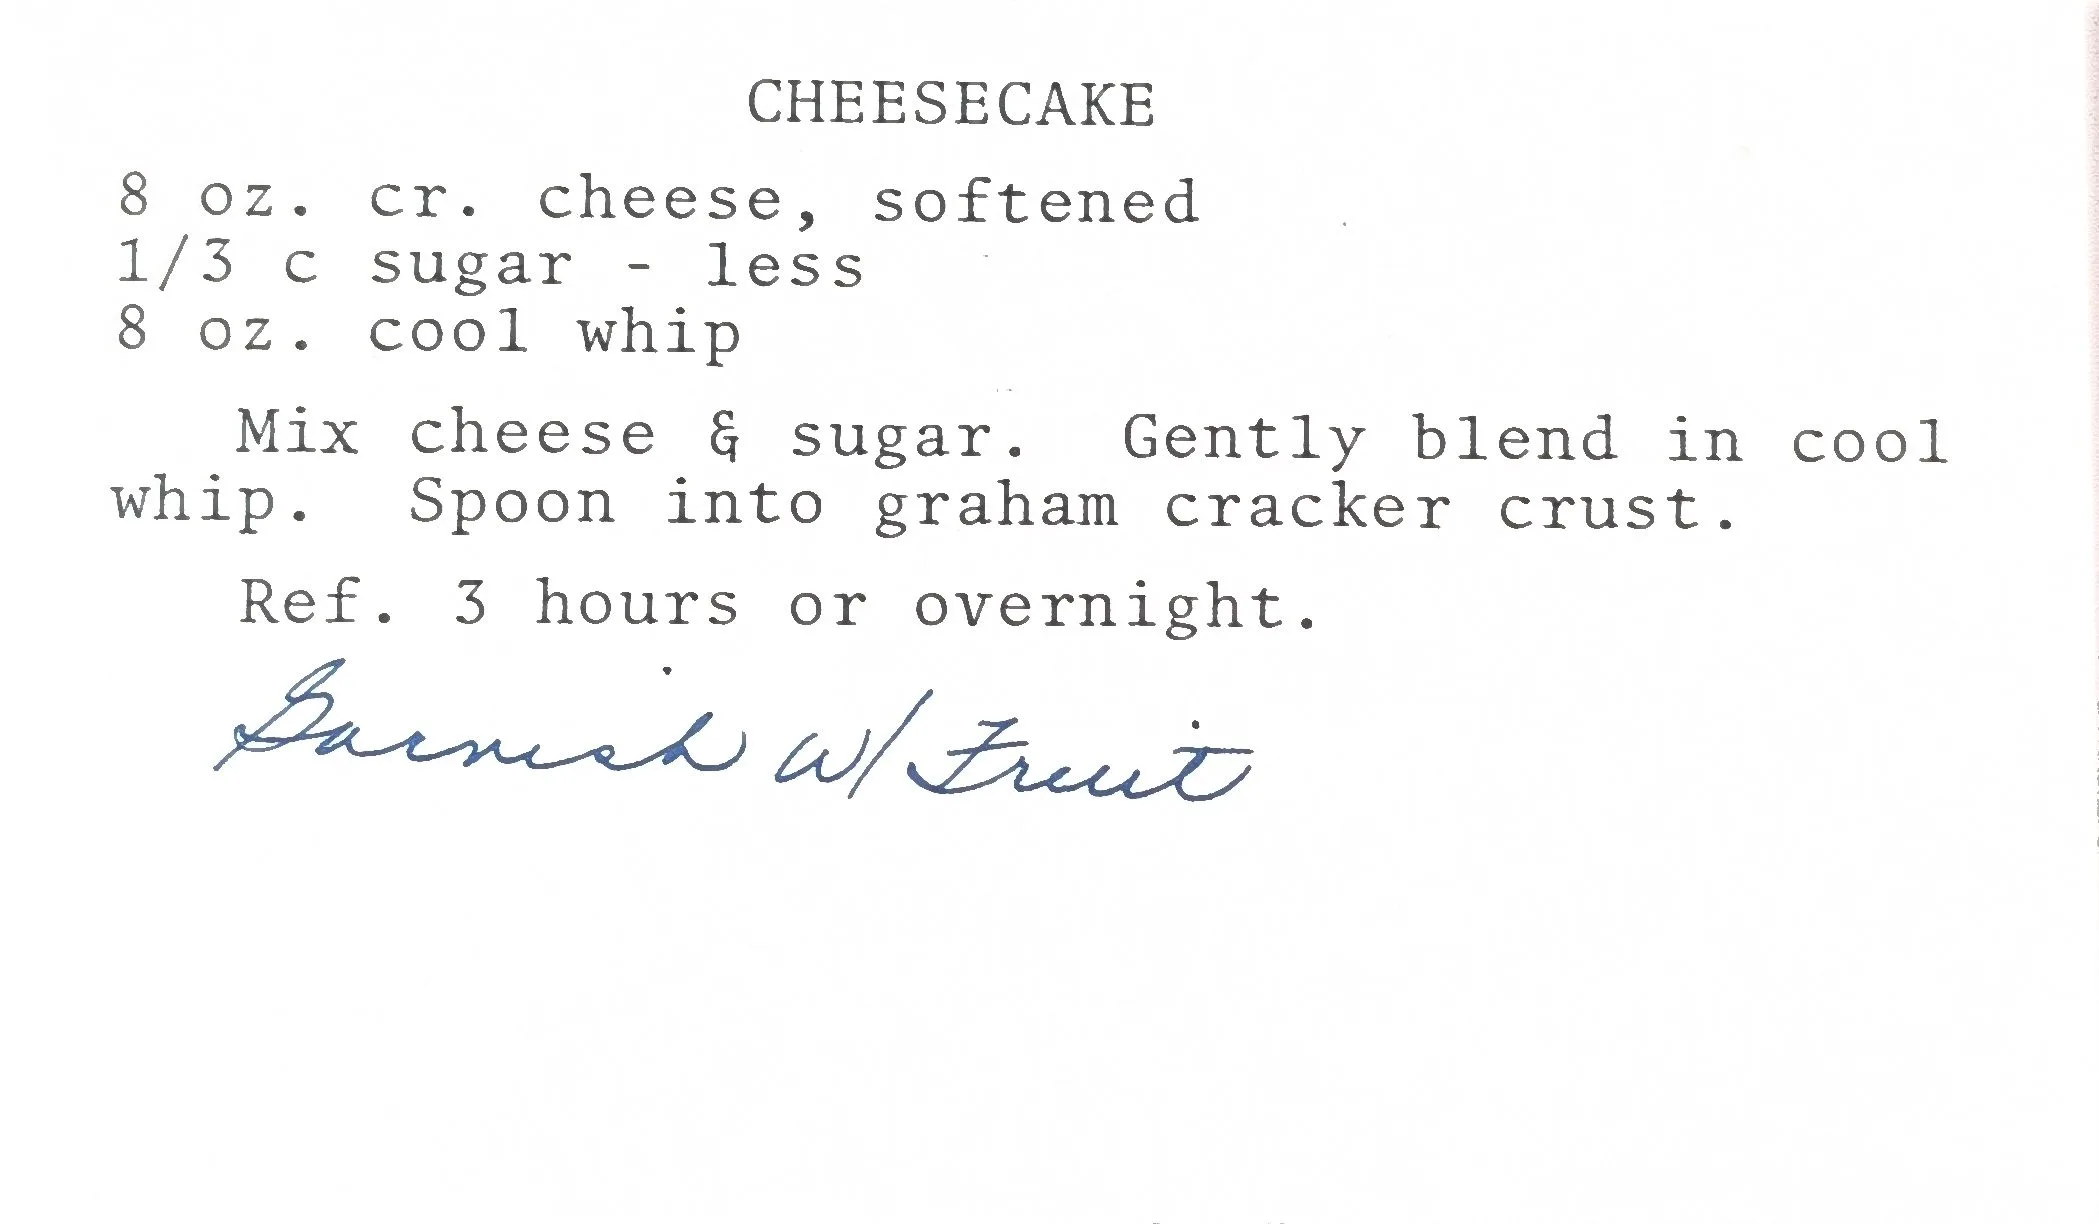 CHEESECAKE
8 oz. cr. cheese, softened
1/3 c sugar - less
8 oz. cool whip
Mix cheese & sugar. Gently blend in cool
whip. Spoon into graham cracker crust.
Ref. 3 hours or overnight.
Garnish w/ Fruit